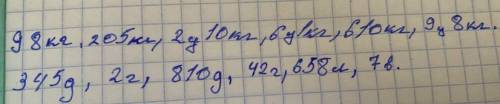 98кг, 205кг, 2ц10кг, 6ц1кг, 610кг, 9ц8кг.
345д, 2г, 810д, 42г, 658л, 7в.